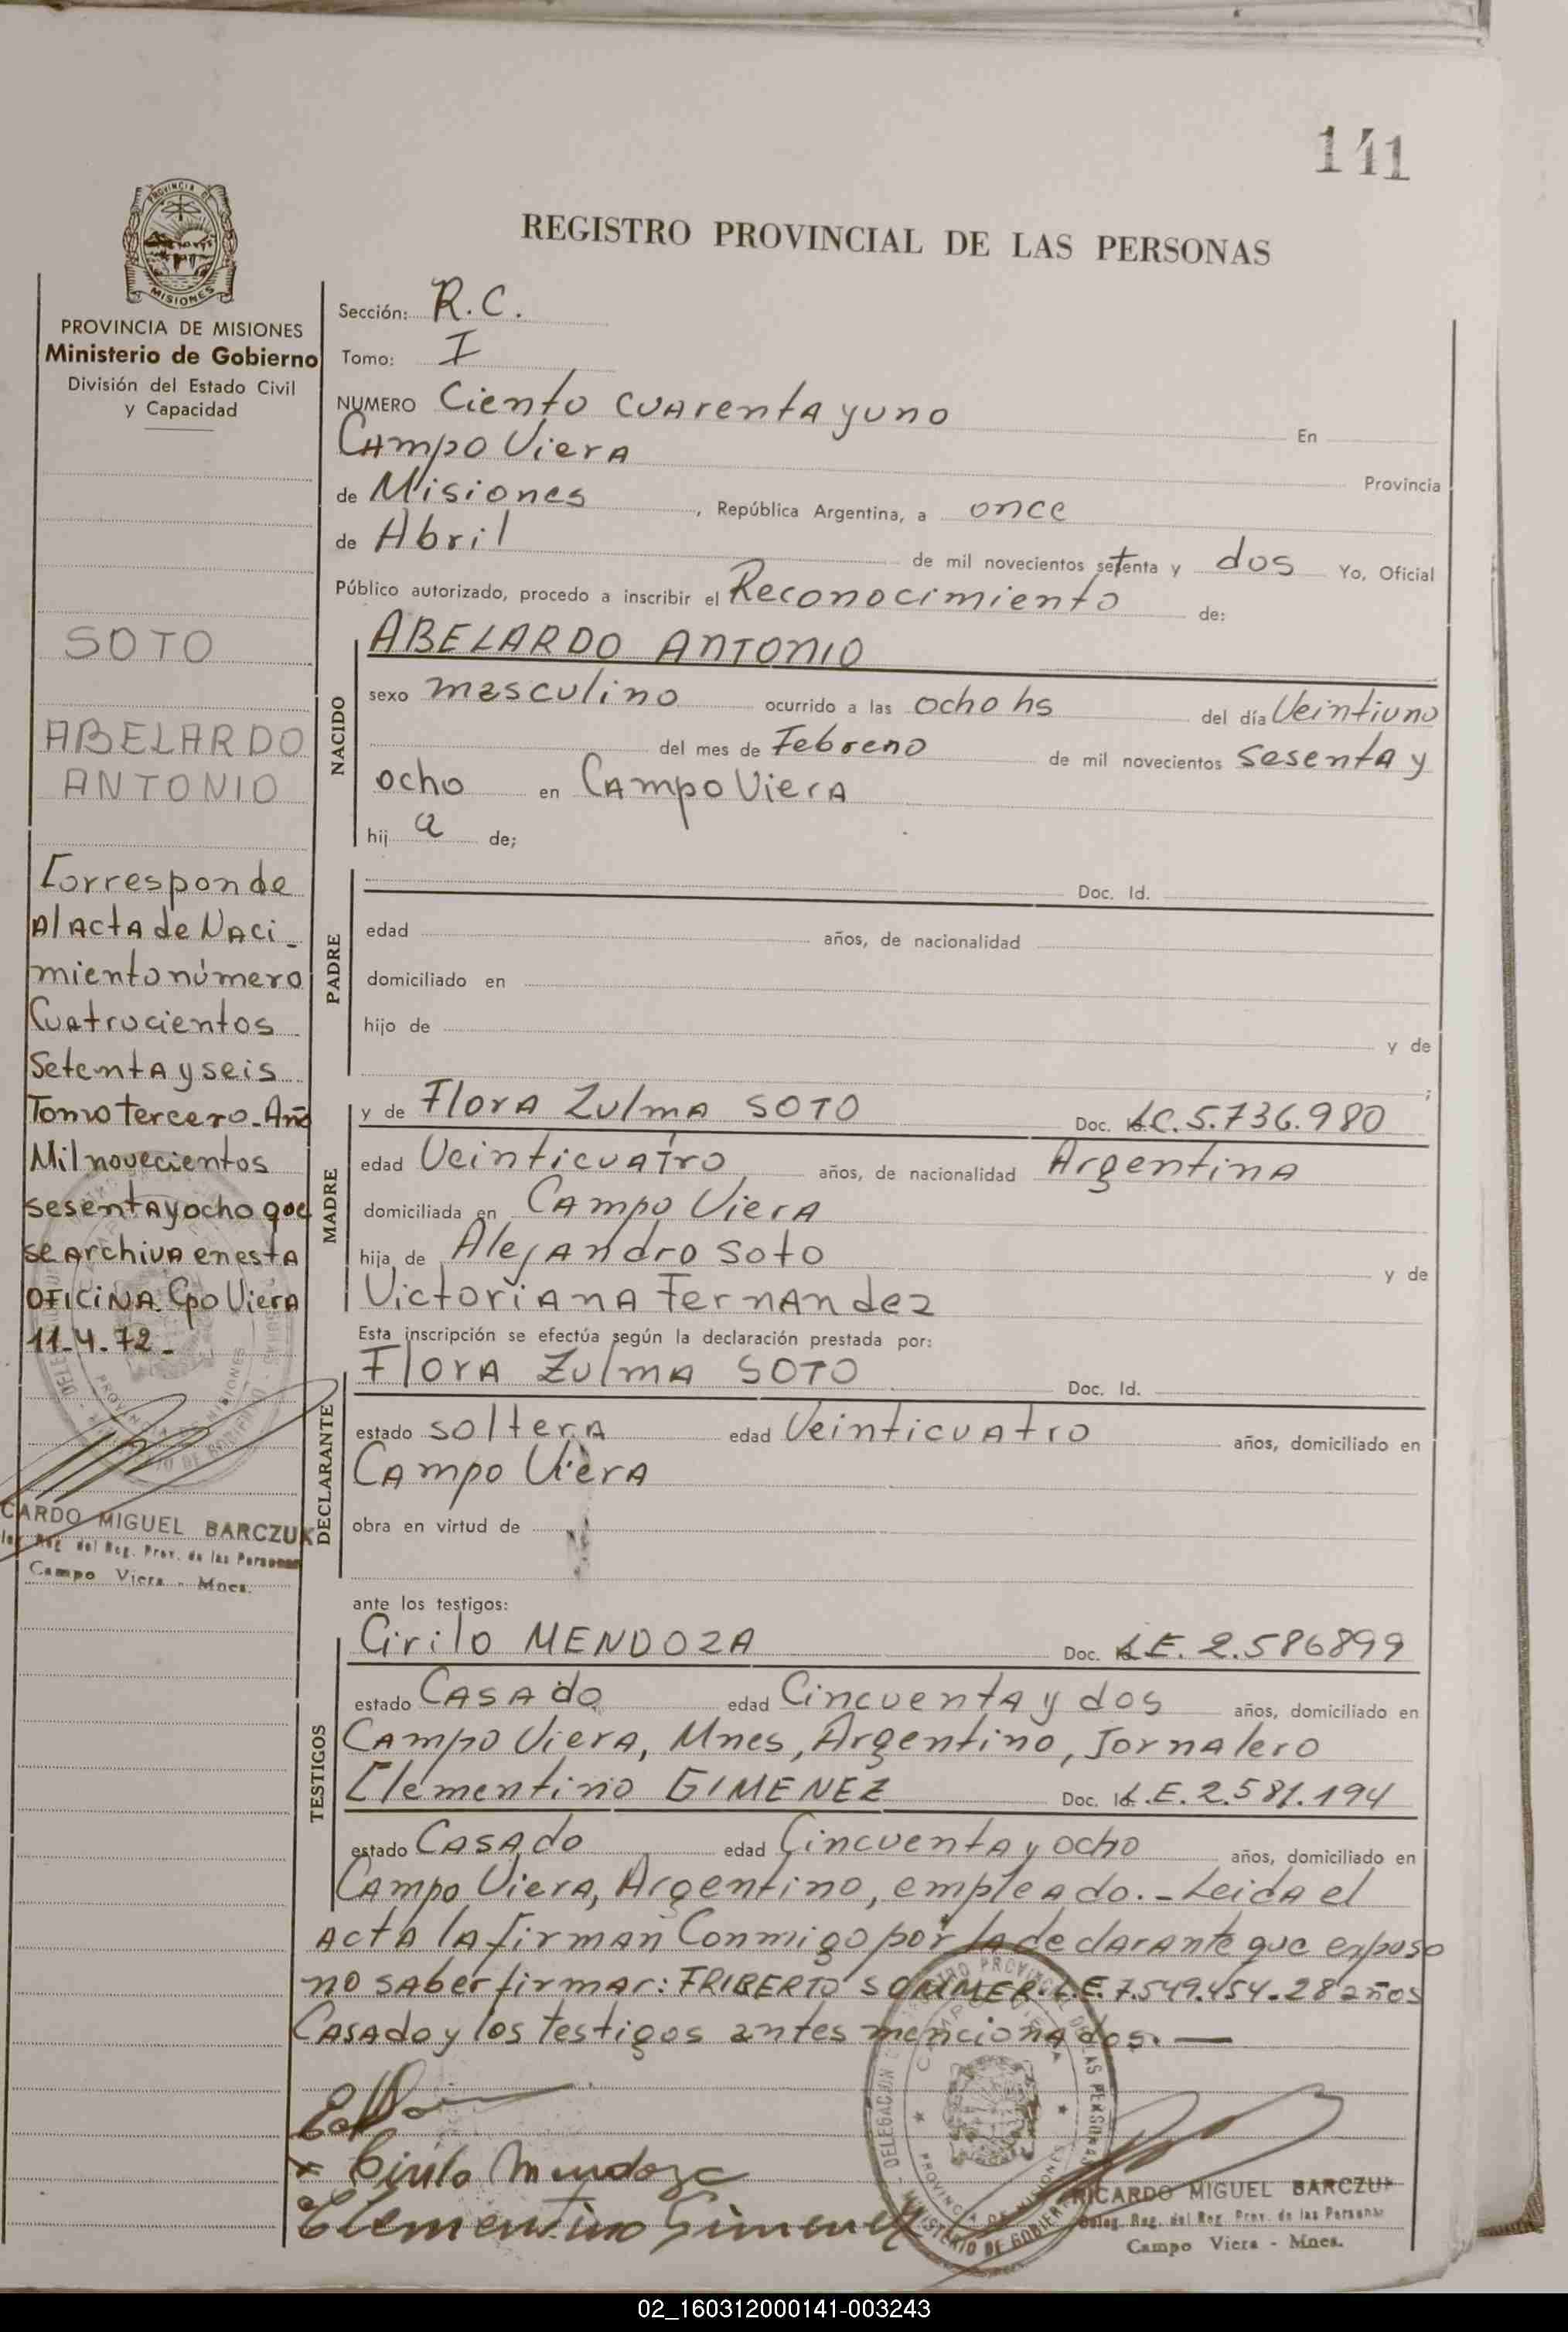 141
REGISTRO PROVINCIAL DE LAS PERSONAS
PROVINCIA DE MISIONES
Ministerio de Gobierno
División del Estado Civil
y Capacidad
SOTO
ABELARDO
ANTONIO
Corresponde
Al Acta de Naci-
miento número
Cuatrocientos
Setenta y seis
Tomo tercero. Año
Mil novecientos
sesenta y ocho que
se archiva en esta
OFICINA. Cpo Viera
11-4-72-
CARDO MIGUEL BARCZUK
Reg. del Reg. Prov. de las Personas
Campo Viera - Mnes.
Sección: R.C.
Tomo: I
NUMERO Ciento cuarenta y uno En
Campo Viera Provincia
de Misiones, República Argentina, a once
de Abril de mil novecientos setenta y dos Yo, Oficial
Público autorizado, procedo a inscribir el Reconocimiento de:
NACIDO
ABELARDO ANTONIO
sexo masculino ocurrido a las ocho hs del día Veintiuno
del mes de Febrero de mil novecientos sesenta y
ocho en Campo Viera
hij a de;
PADRE
Doc. Id.
edad años, de nacionalidad
domiciliado en
hijo de y de
;
MADRE
y de Flora Zulma SOTO Doc. L.C. 5.736.980
edad Veinticuatro años, de nacionalidad Argentina
domiciliada en Campo Viera
hija de Alejandro Soto y de
Victoriana Fernandez
Esta inscripción se efectúa según la declaración prestada por:
DECLARANTE
Flora Zulma SOTO Doc. Id.
estado soltera edad Veinticuatro años, domiciliado en
Campo Viera
obra en virtud de
ante los testigos:
TESTIGOS
Cirilo MENDOZA Doc. L.E. 2.586899
estado Casado edad Cincuenta y dos años, domiciliado en
Campo Viera, Mnes, Argentino, Jornalero
Clementino GIMENEZ Doc. Id. L.E. 2.581.194
estado Casado edad Cincuenta y ocho años, domiciliado en
Campo Viera, Argentino, empleado.- Leida el
Acta la firman Conmigo por la declarante que expuso
no saber firmar: FRIBERTO SOMMER. L.E. 7.549.454. 28 años
Casado y los testigos antes mencionados.—
x Cirilo Mendoza
Clementino Gimenez
RICARDO MIGUEL BARCZUK
Deleg. Reg. del Reg. Prov. de las Personas
Campo Viera - Mnes.
02_160312000141-003243